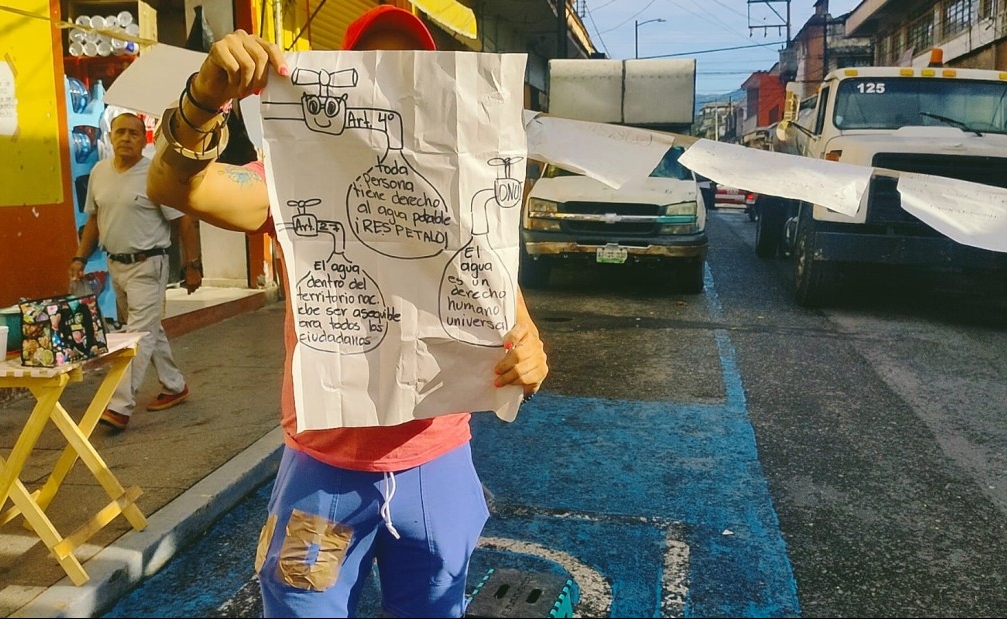 Art. 4º
toda
persona
tiene derecho
al agua potable
¡RESPETALO!
ONU
El
agua
es un
derecho
humano
universal
Art. 27
El agua
dentro del
territorio nac.
ebe ser asequible
ara todos los
ciudadanos
125